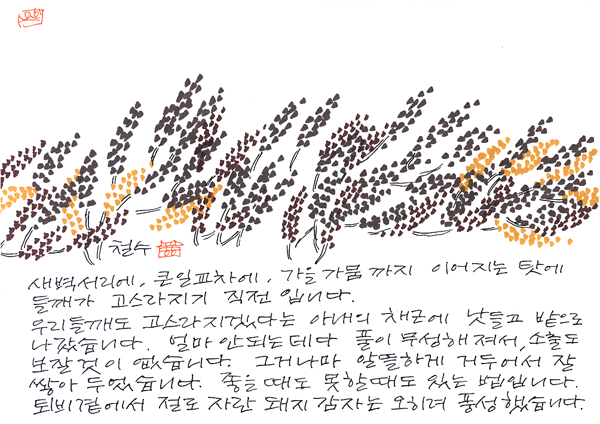 철수
새벽서리에, 큰일교차에, 가을가뭄 까지 이어지는 탓에
들깨가 고스라지기 직전 입니다.
우리들깨도 고스라지겠다는 아내의 채근에 낫들고 밭으로
나갔습니다. 얼마 안되는데다 풀이 무성해져서, 소출도
보잘것이 없습니다. 그거나마 알뜰하게 거두어서 잘
쌓아 두었습니다. 좋을때도 못할때도 있는 법입니다.
퇴비곁에서 절로 자란 돼지감자는 오히려 풍성했습니다.